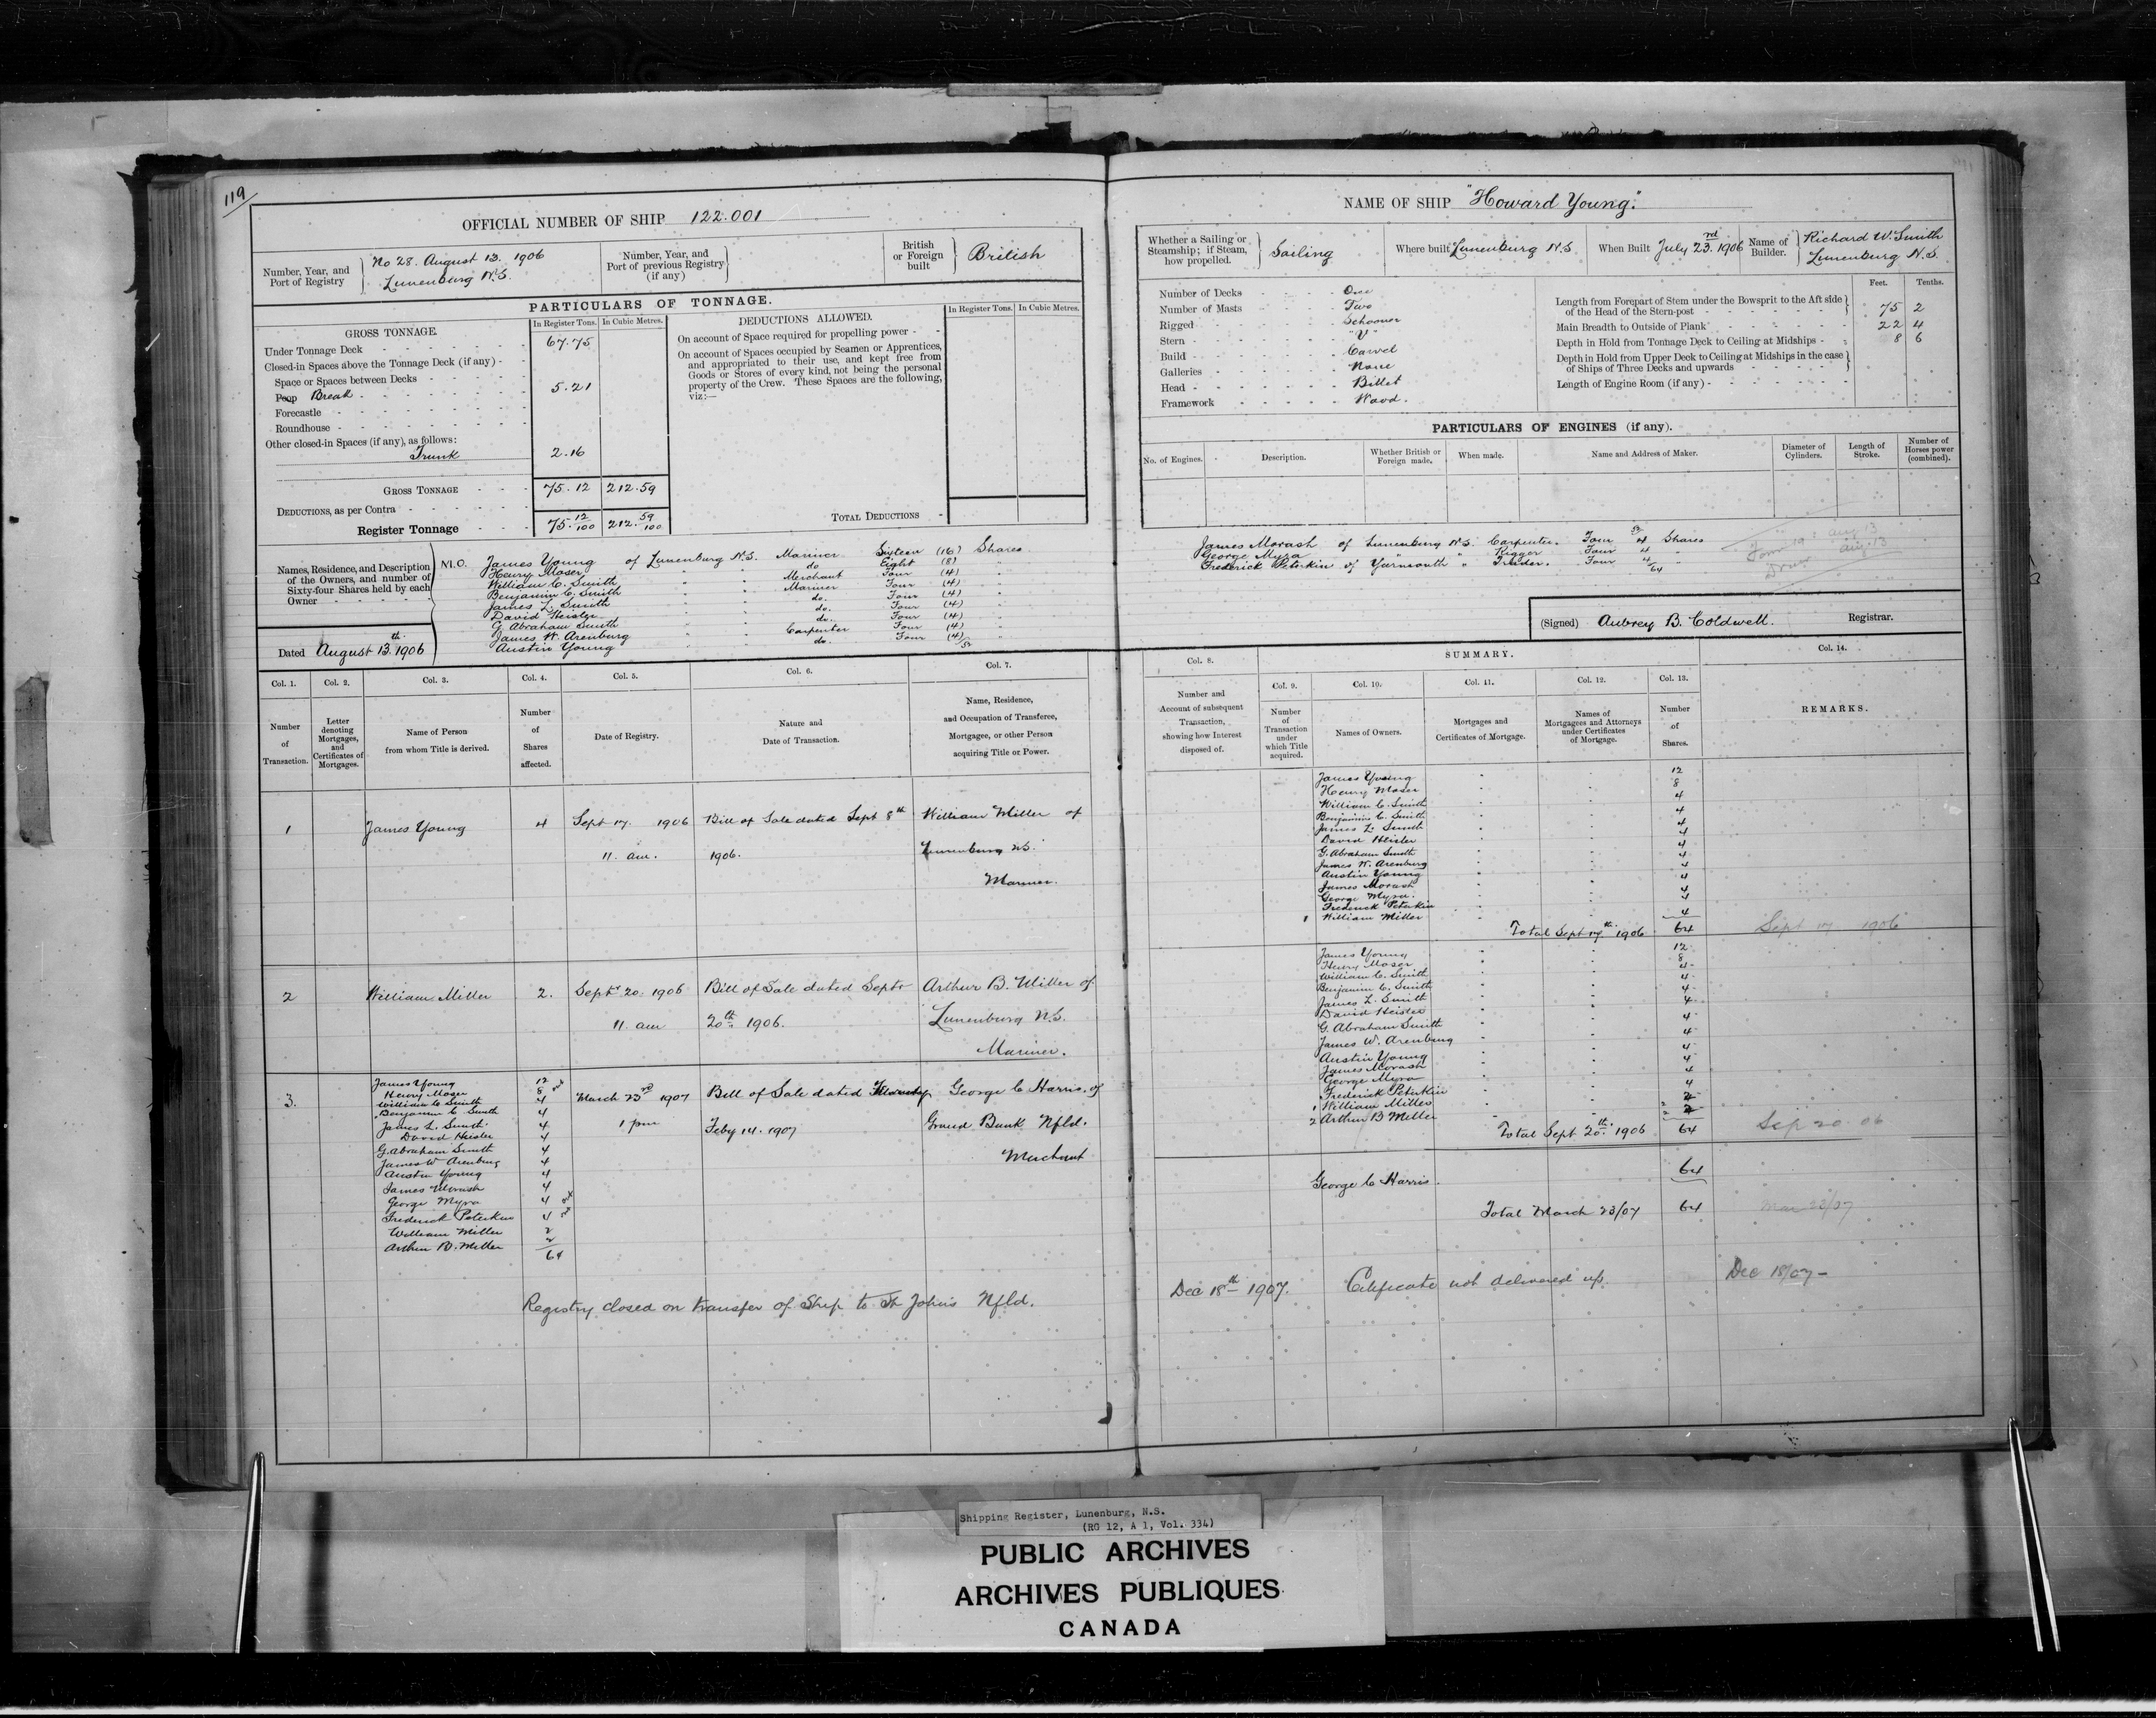 119
OFFICIAL NUMBER OF SHIP 122.001
Number, Year, and Port of Registry } No 28. August 13. 1906 Lunenburg N.S.
Number, Year, and Port of previous Registry (if any) }
British or Foreign built } British
PARTICULARS OF TONNAGE.
GROSS TONNAGE.
In Register Tons. In Cubic Metres.
Under Tonnage Deck 67.75
Closed-in Spaces above the Tonnage Deck (if any)
Space or Spaces between Decks
Poop Break 5.21
Forecastle
Roundhouse
Other closed-in Spaces (if any), as follows:
Trunk 2.16
GROSS TONNAGE 75.12 212.59
DEDUCTIONS, as per Contra
Register Tonnage 75.12/100 212.59/100
DEDUCTIONS ALLOWED.
In Register Tons. In Cubic Metres.
On account of Space required for propelling power
On account of Spaces occupied by Seamen or Apprentices,
and appropriated to their use, and kept free from
Goods or Stores of every kind, not being the personal
property of the Crew. These Spaces are the following,
viz:—
TOTAL DEDUCTIONS
Names, Residence, and Description
of the Owners, and number of
Sixty-four Shares held by each
Owner
M.O. James Young of Lunenburg N.S. Mariner Sixteen (16) Shares
Henry Moser " " do Eight (8) "
William C. Smith " " Merchant Four (4) "
Benjamin C. Smith " " Mariner Four (4) "
James L. Smith " " do. Four (4) "
David Heisler " " do. Four (4) "
G. Abraham Smith " " do. Four (4) "
James W. Arenburg " " Carpenter Four (4) "
Austin Young " " do. Four (4) "
52
Dated August 13th. 1906
Col. 1. Col. 2. Col. 3. Col. 4. Col. 5. Col. 6. Col. 7.
Number of Transaction.
Letter denoting Mortgages, and Certificates of Mortgages.
Name of Person from whom Title is derived.
Number of Shares affected.
Date of Registry.
Nature and Date of Transaction.
Name, Residence, and Occupation of Transferee, Mortgagee, or other Person acquiring Title or Power.
1 James Young 4 Sept 17. 1906 Bill of Sale dated Sept 8th William Miller of
11. am. 1906. Lunenburg NS.
Mariner.
2 William Miller 2. Sept 20. 1906 Bill of Sale dated Septr Arthur B. Miller of
11. am 20th 1906. Lunenburg N.S.
Mariner.
3. March 23rd 1907 Bill of Sale dated George C Harris. of
1 pm Feby 14. 1907 Grand Bank Nfld.
Merchant
James Young 12
Henry Moser 8
William C Smith 4
Benjamin C Smith 4
James L. Smith 4
David Heisler 4
G. Abraham Smith 4
James W Arenburg 4
Austin Young 4
James Morash 4
George Myra 4
Frederick Peterkin 4
William Miller 2
Arthur B. Miller 2
64
Registry closed on transfer of Ship to St Johns Nfld.
NAME OF SHIP "Howard Young."
Whether a Sailing or Steamship; if Steam, how propelled. } Sailing
Where built Lunenburg N.S
When Built July 23rd. 1906
Name of Builder. } Richard W. Smith Lunenburg N.S.
Number of Decks One
Number of Masts Two
Rigged Schooner
Stern "V"
Build Carvel
Galleries None
Head Billet
Framework Wood.
Feet. Tenths.
Length from Forepart of Stem under the Bowsprit to the Aft side of the Head of the Stern-post 75 2
Main Breadth to Outside of Plank 22 4
Depth in Hold from Tonnage Deck to Ceiling at Midships 8 6
Depth in Hold from Upper Deck to Ceiling at Midships in the case of Ships of Three Decks and upwards
Length of Engine Room (if any)
PARTICULARS OF ENGINES (if any).
No. of Engines. Description. Whether British or Foreign made. When made. Name and Address of Maker. Diameter of Cylinders. Length of Stroke. Number of Horses power (combined).
52
James Morash of Lunenburg N.S. Carpenter. Four 4 Shares
George Myra " " " Rigger Four 4 "
Frederick Peterkin of Yarmouth " Trader. Four 4 "
64
aug. 13
(Signed) Aubrey B. Coldwell. Registrar.
SUMMARY.
Col. 8. Col. 9. Col. 10. Col. 11. Col. 12. Col. 13. Col. 14.
Number and Account of subsequent Transaction, showing how Interest disposed of.
Number of Transaction under which Title acquired.
Names of Owners.
Mortgages and Certificates of Mortgage.
Names of Mortgagees and Attorneys under Certificates of Mortgage.
Number of Shares.
REMARKS.
James Young 12
Henry Moser 8
William C. Smith 4
Benjamin C. Smith 4
James L. Smith 4
David Heisler 4
G. Abraham Smith 4
James W. Arenburg 4
Austin Young 4
James Morash 4
George Myra 4
Frederick Peterkin 4
1 William Miller 4
Total Sept 17th 1906 64 Sept 17 1906
James Young 12
Henry Moser 8
William C. Smith 4
Benjamin C. Smith 4
James L. Smith 4
David Heisler 4
G. Abraham Smith 4
James W. Arenburg 4
Austin Young 4
James Morash 4
George Myra 4
Frederick Peterkin 4
1 William Miller 2
2 Arthur B Miller 2
Total Sept 20th. 1906 64 Sep 20 06
George C Harris. 64
Total March 23/07 64 Mar 23/07
Dec 18th 1907. Certificate not delivered up. Dec 18/07-
Shipping Register, Lunenburg, N.S.
(RG 12, A 1, Vol. 334)
PUBLIC ARCHIVES
ARCHIVES PUBLIQUES
CANADA